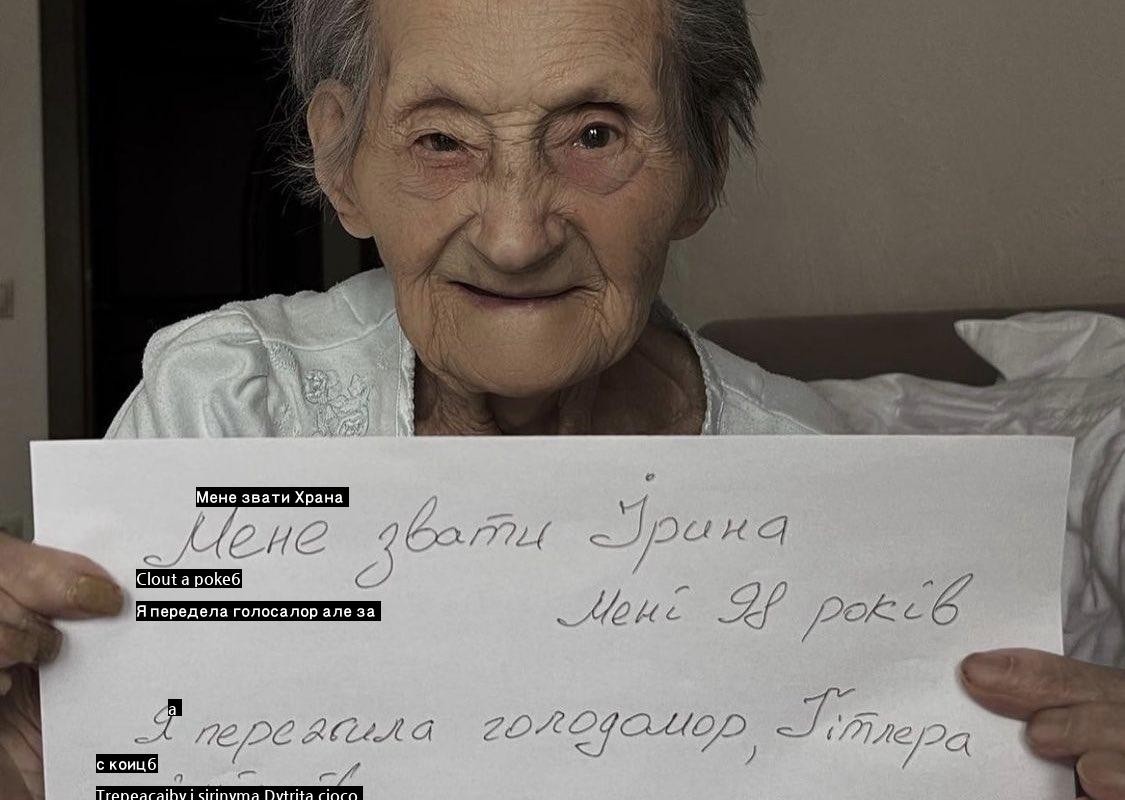 Мене звати Храна
Мене звати Ірина
Clout a рокеб
мені 98 років
Я передела голосалор але за
а
Я пережила голодомор, Гітлера
с коицб
Trepeacaiby i sirinyma Dytrita cioco